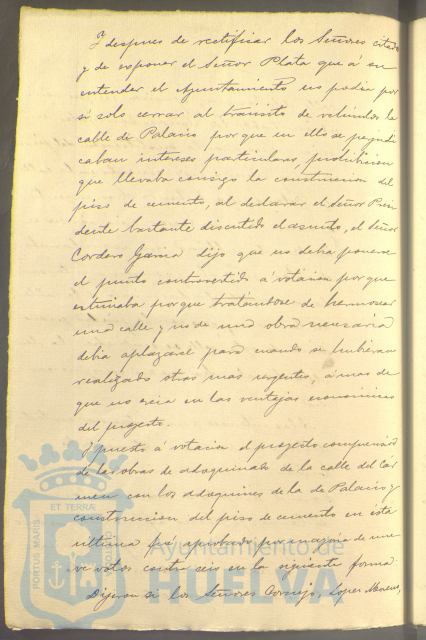 Y despues de rectificar los Señores citado
y de exponer el Señor Plata que á su
entender el Ayuntamiento no podia por
si solo cerrar al tránsito de vehiculos la
calle de Palacio porque en ello se perjudi
caban intereses particulares, prohibicion
que llevaba consigo la construccion del
piso de cemento, al declarar el Señor Presi
dente bastante discutido el asunto, el Señor
Cordero Garcia dijo que no debia ponerse
el punto controvertido á votacion porque
estimaba porque tratándose de hermosear
una calle y no de una obra necesaria
debia aplazarse para cuando se hubieran
realizado otras mas urgentes, á mas de
que no creia en las ventajas economicas
del proyecto.
Y puesto á votacion el proyecto comprensivo
de las obras de adoquinado de la calle del Cár
men con los adoquines de la de Palacio y
construccion del piso de cemento en esta
ultima fué aprobado por mayoria de nue
ve votos contra seis en la siguiente forma.
Dijeron si los Señores Cornejo, Lopez
PORTUS MARIS
ET TERRÆ
Ayuntamiento de
HUELVA